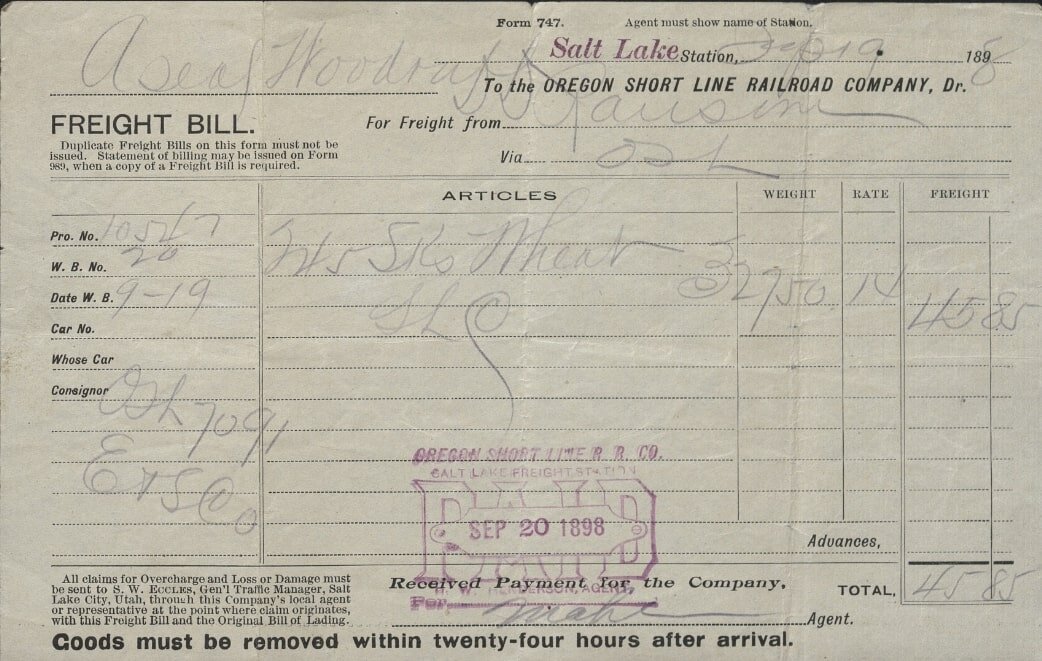 Form 747. Agent must show name of Station.
Salt Lake Station, Sep 19 1898
Aseal Woodruff
To the OREGON SHORT LINE RAILROAD COMPANY, Dr.
FREIGHT BILL.
For Freight from
Duplicate Freight Bills on this form must not be
issued. Statement of billing may be issued on Form
989, when a copy of a Freight Bill is required.
Via OSL
ARTICLES WEIGHT RATE FREIGHT
Pro. No. 10547
245 SKs Wheat 32750 14 45 85
W. B. No. 20
Date W. B. 9-19
SLC
Car No.
Whose Car
Consignor
OSL 7091
E T S Co
OREGON SHORT LINE R. R. CO.
SALT LAKE FREIGHT STATION
PAID
SEP 20 1898
Advances,
All claims for Overcharge and Loss or Damage must
be sent to S. W. ECCLES, Gen'l Traffic Manager, Salt
Lake City, Utah, through this Company's local agent
or representative at the point where claim originates,
with this Freight Bill and the Original Bill of Lading.
Received Payment for the Company,
HENDERSON, AGENT,
For
Agent.
TOTAL, 45 85
Goods must be removed within twenty-four hours after arrival.